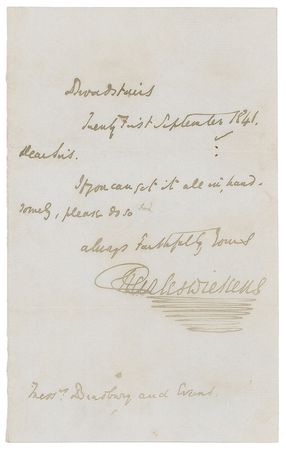 Broadstairs
Twenty First September 1841.
Dear Sirs.
If you can get it all in, hand-
somely, please do so
always Faithfully Yours
Charles Dickens
Messrs. Bradbury and Evans.